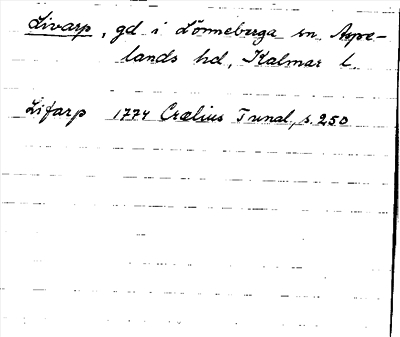 Livarp, gd i Lönneberga sn Aspe-
lands hd, Kalmar l
Lifarp 1774 Crælius Tunal, s. 250